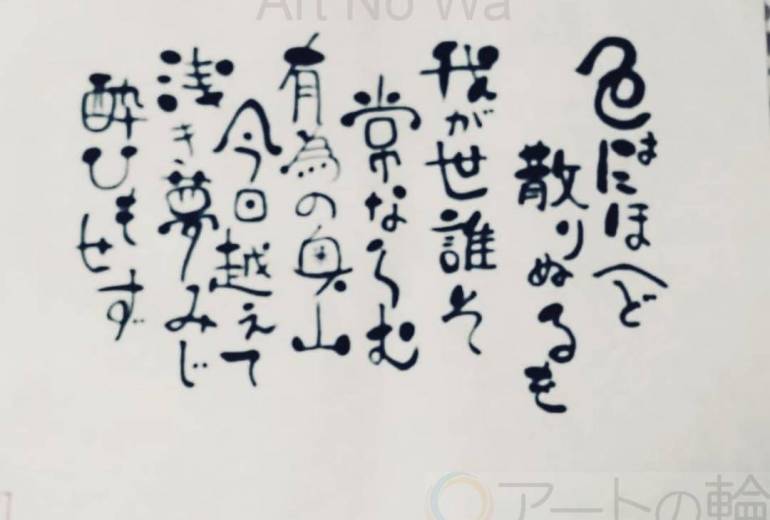 Art No Wa
色はにほへど
散りぬるを
我が世誰そ
常ならむ
有為の奥山
今日越えて
浅き夢みじ
酔ひもせず
アートの輪